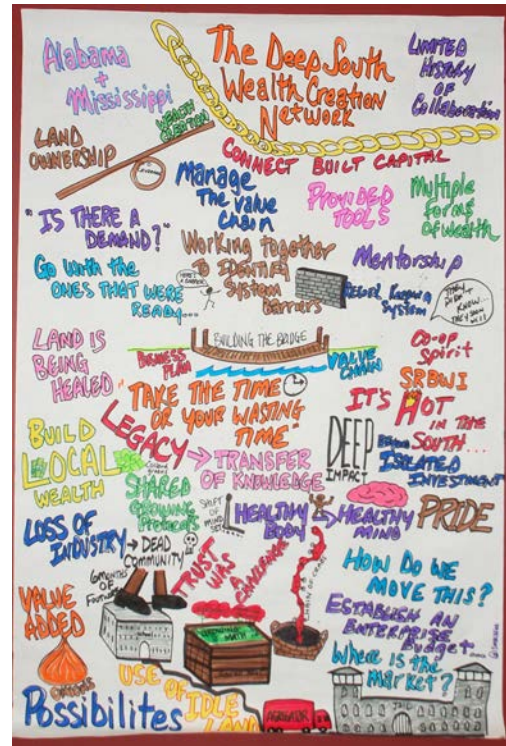 Alabama
+
Mississippi
The Deep South
Wealth Creation
Network
LIMITED
HISTORY
OF
Collaboration
WEALTH
CREATION
LAND
OWNERSHIP
CONNECT BUILT CAPITAL
Manage
The value
Chain
PROVIDED
TOOLS
Multiple
forms
of wealth
"IS THERE A
DEMAND?"
Working together
To IDENTIFY
System
Barriers
Mentorship
Go with the
ONES THAT WERE
READY...
System
THEY
DIDN'T
KNOW...
LAND IS
BEING
HEALED
BUILDING THE BRIDGE
BUSINESS
PLAN
VALUE
CHAIN
CO-OP
SPIRIT
SRBWI
"TAKE THE TIME
OR YOUR WASTING
TIME"
IT'S HOT
IN THE
SOUTH...
BUILD
LOCAL
WEALTH
LEGACY
→ TRANSFER
OF KNOWLEDGE
DEEP
IMPACT
ISOLATED
INVESTMENT
SHARED
GROWING
PROTOCOLS
SHIFT OF
MIND
SET
HEALTHY
BODY
→ HEALTHY
MIND
PRIDE
LOSS OF
INDUSTRY
→ DEAD
COMMUNITY
TRUST WAS
A
CHALLENGE
HOW DO WE
MOVE THIS?
VALUE
ADDED
ESTABLISH AN
ENTERPRISE
Budget...
Where is the
Market?
USE OF IDLE
LAND
Possibilites